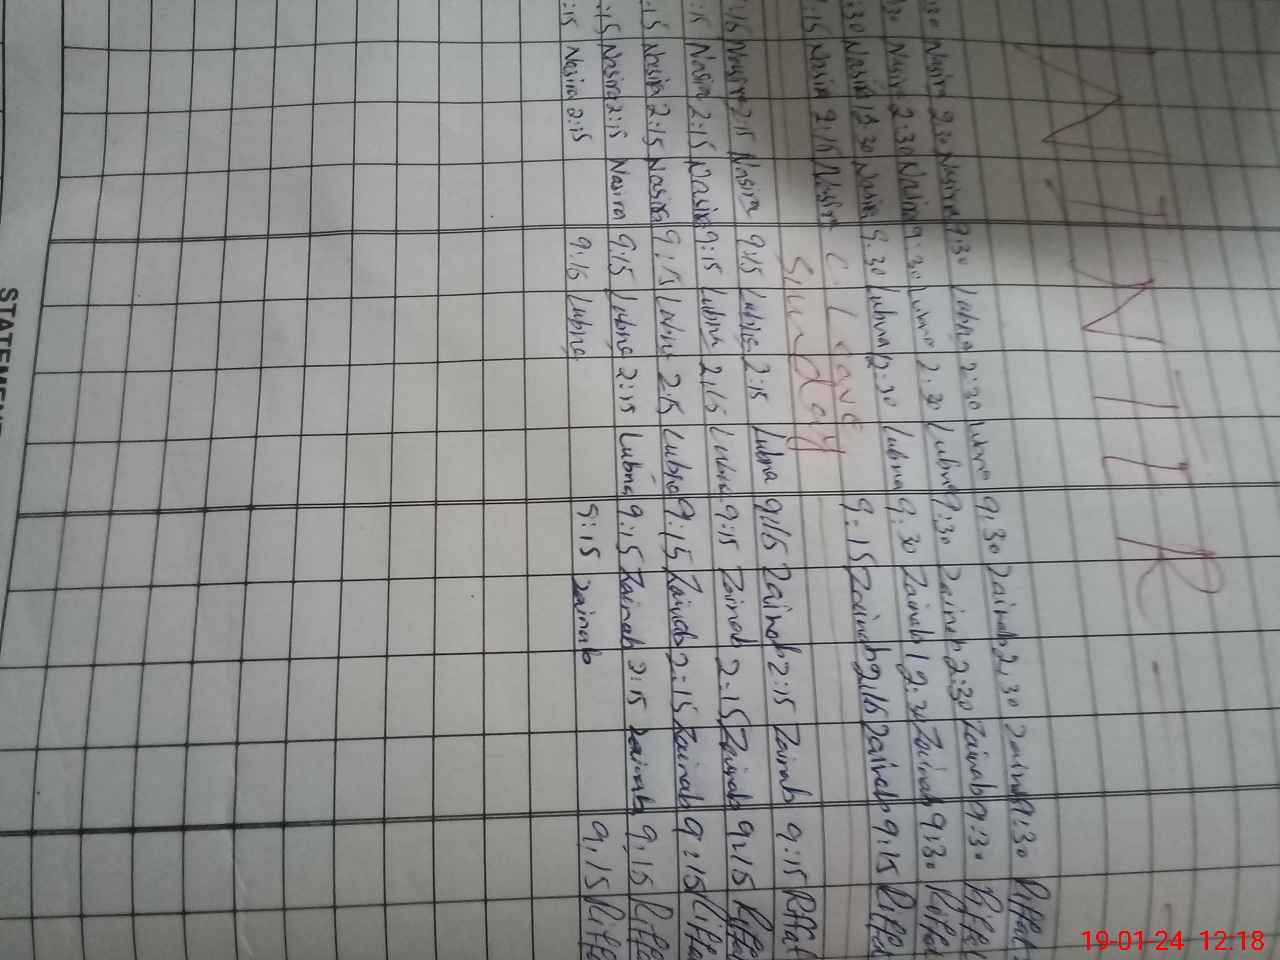 W I N T E R
:30 Nasira 2:30 Nasira 9:30 Lubna 2:30 Lubna 9:30 Zainab 2:30 Zainab 9:30 Riffat
:30 Nasira 2:30 Nasira 9:30 Lubna 2:30 Lubna 9:30 Zainab 2:30 Zainab 9:30 Riffat
:30 Nasira 12:30 Nasira 9:30 Lubna 12:30 Lubna 9:30 Zainab 12:30 Zainab 9:30 Riffat
:15 Nasira 2:15 Nasira C. Leave 9:15 Zainab 2:15 Zainab 9:15 Riffat
Sunday
:15 Nasira 2:15 Nasira 9:15 Lubna 2:15 Lubna 9:15 Zainab 2:15 Zainab 9:15 Riffat
:15 Nasira 2:15 Nasira 9:15 Lubna 2:15 Lubna 9:15 Zainab 2:15 Zainab 9:15
:15 Nasira 2:15 Nasira 9:15 Lubna 2:15 Lubna 9:15 Zainab 2:15 Zainab 9:15
:15 Nasira 2:15 Nasira 9:15 Lubna 2:15 Lubna 9:15 Zainab 2:15 Zainab 9:15
:15 Nasira 2:15 9:15 Lubna 9:15 Zainab 9:15
19-01-24 12:18